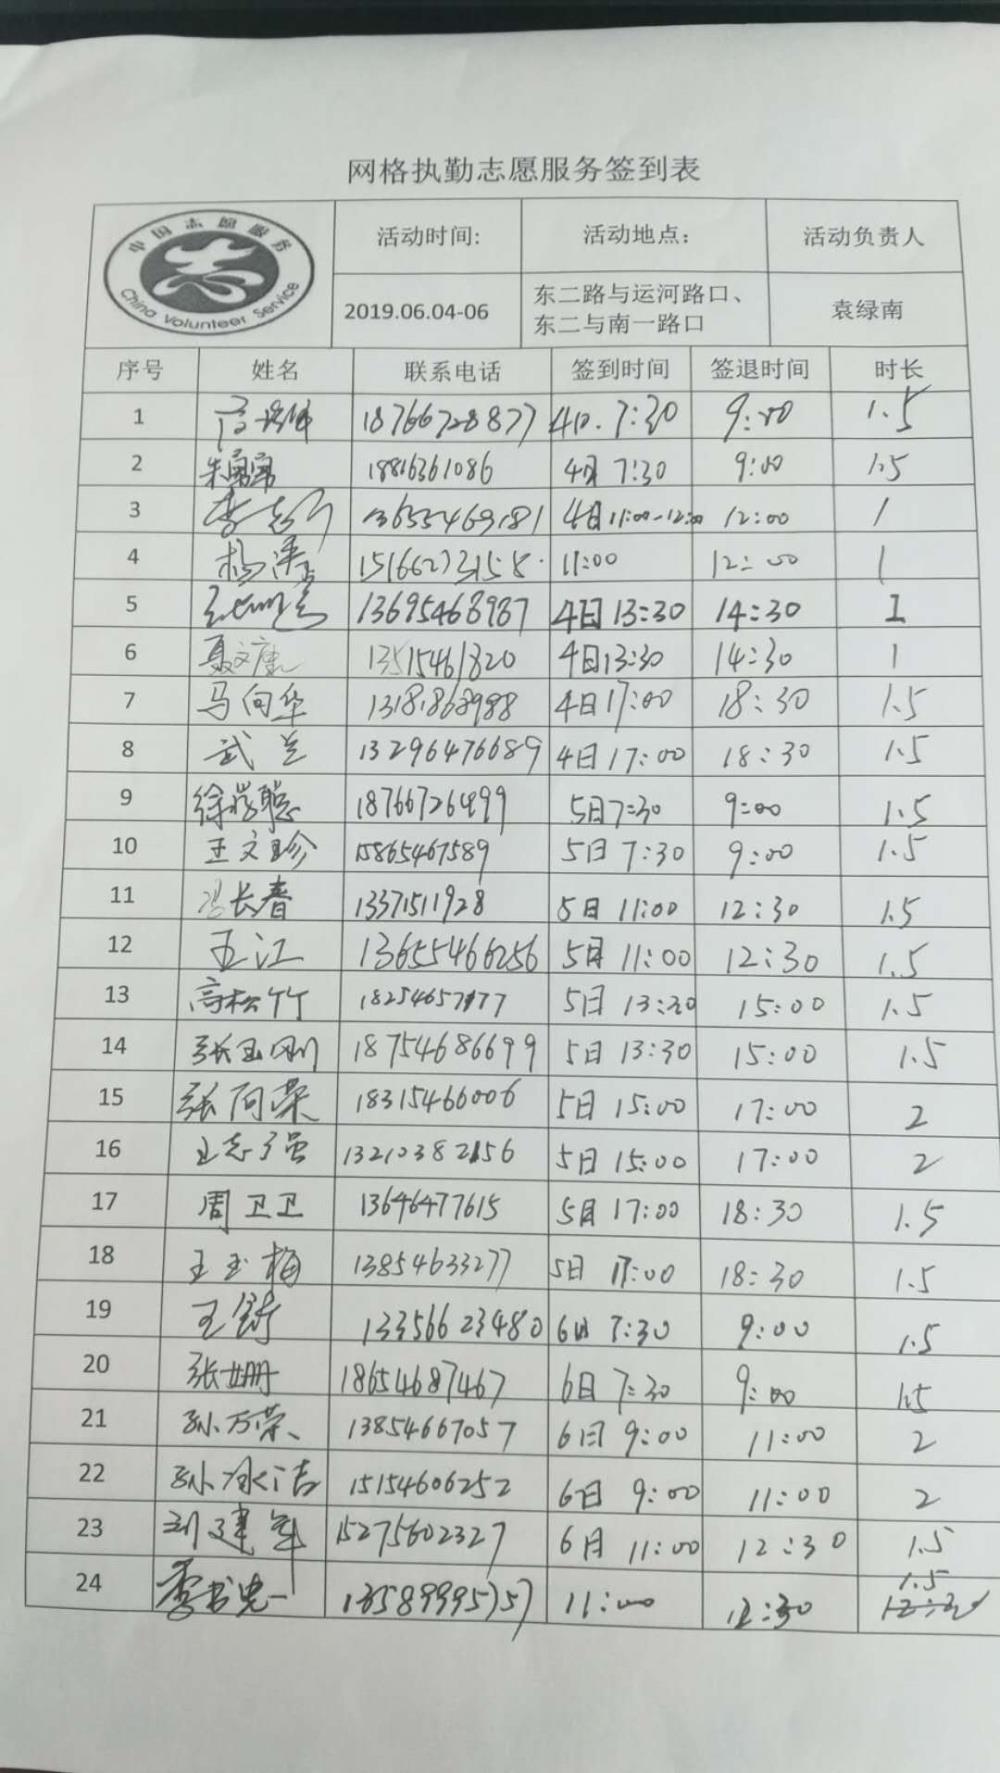 网格执勤志愿服务签到表
中国志愿服务
China Volunteer Service
活动时间: 活动地点： 活动负责人
2019.06.04-06 东二路与运河路口、 袁绿南
东二与南一路口
序号 姓名 联系电话 签到时间 签退时间 时长
1 18766728877 4日.7:30 9:00 1.5
2 18816361086 4日 7:30 9:00 1.5
3 13655469181 4日11:00-12:00 12:00 1
4 杨涛 15166273158 11:00 12:00 1
5 13695468987 4日 13:30 14:30 1
6 聂文康 13515461820 4日13:30 14:30 1
7 马向华 13181868988 4日17:00 18:30 1.5
8 武兰 13296476689 4日17:00 18:30 1.5
9 18766726499 5日7:30 9:00 1.5
10 王文珍 15865467589 5日 7:30 9:00 1.5
11 冯长春 13371511928 5日 11:00 12:30 1.5
12 王江 13655466256 5日 11:00 12:30 1.5
13 高松竹 18254657177 5日 13:30 15:00 1.5
14 张玉刚 18754686699 5日 13:30 15:00 1.5
15 张向荣 18315466006 5日 15:00 17:00 2
16 王志强 13210382156 5日 15:00 17:00 2
17 周卫卫 13646477615 5日 17:00 18:30 1.5
18 王玉梅 13854633277 5日 17:00 18:30 1.5
19 13356623480 6日 7:30 9:00 1.5
20 张姗 18654687467 6日 7:30 9:00 1.5
21 孙万荣 13854667057 6日 9:00 11:00 2
22 孙冰洁 15154606252 6日 9:00 11:00 2
23 刘建军 15275602327 6日 11:00 12:30 1.5
24 13589995757 11:00 12:30 1.5